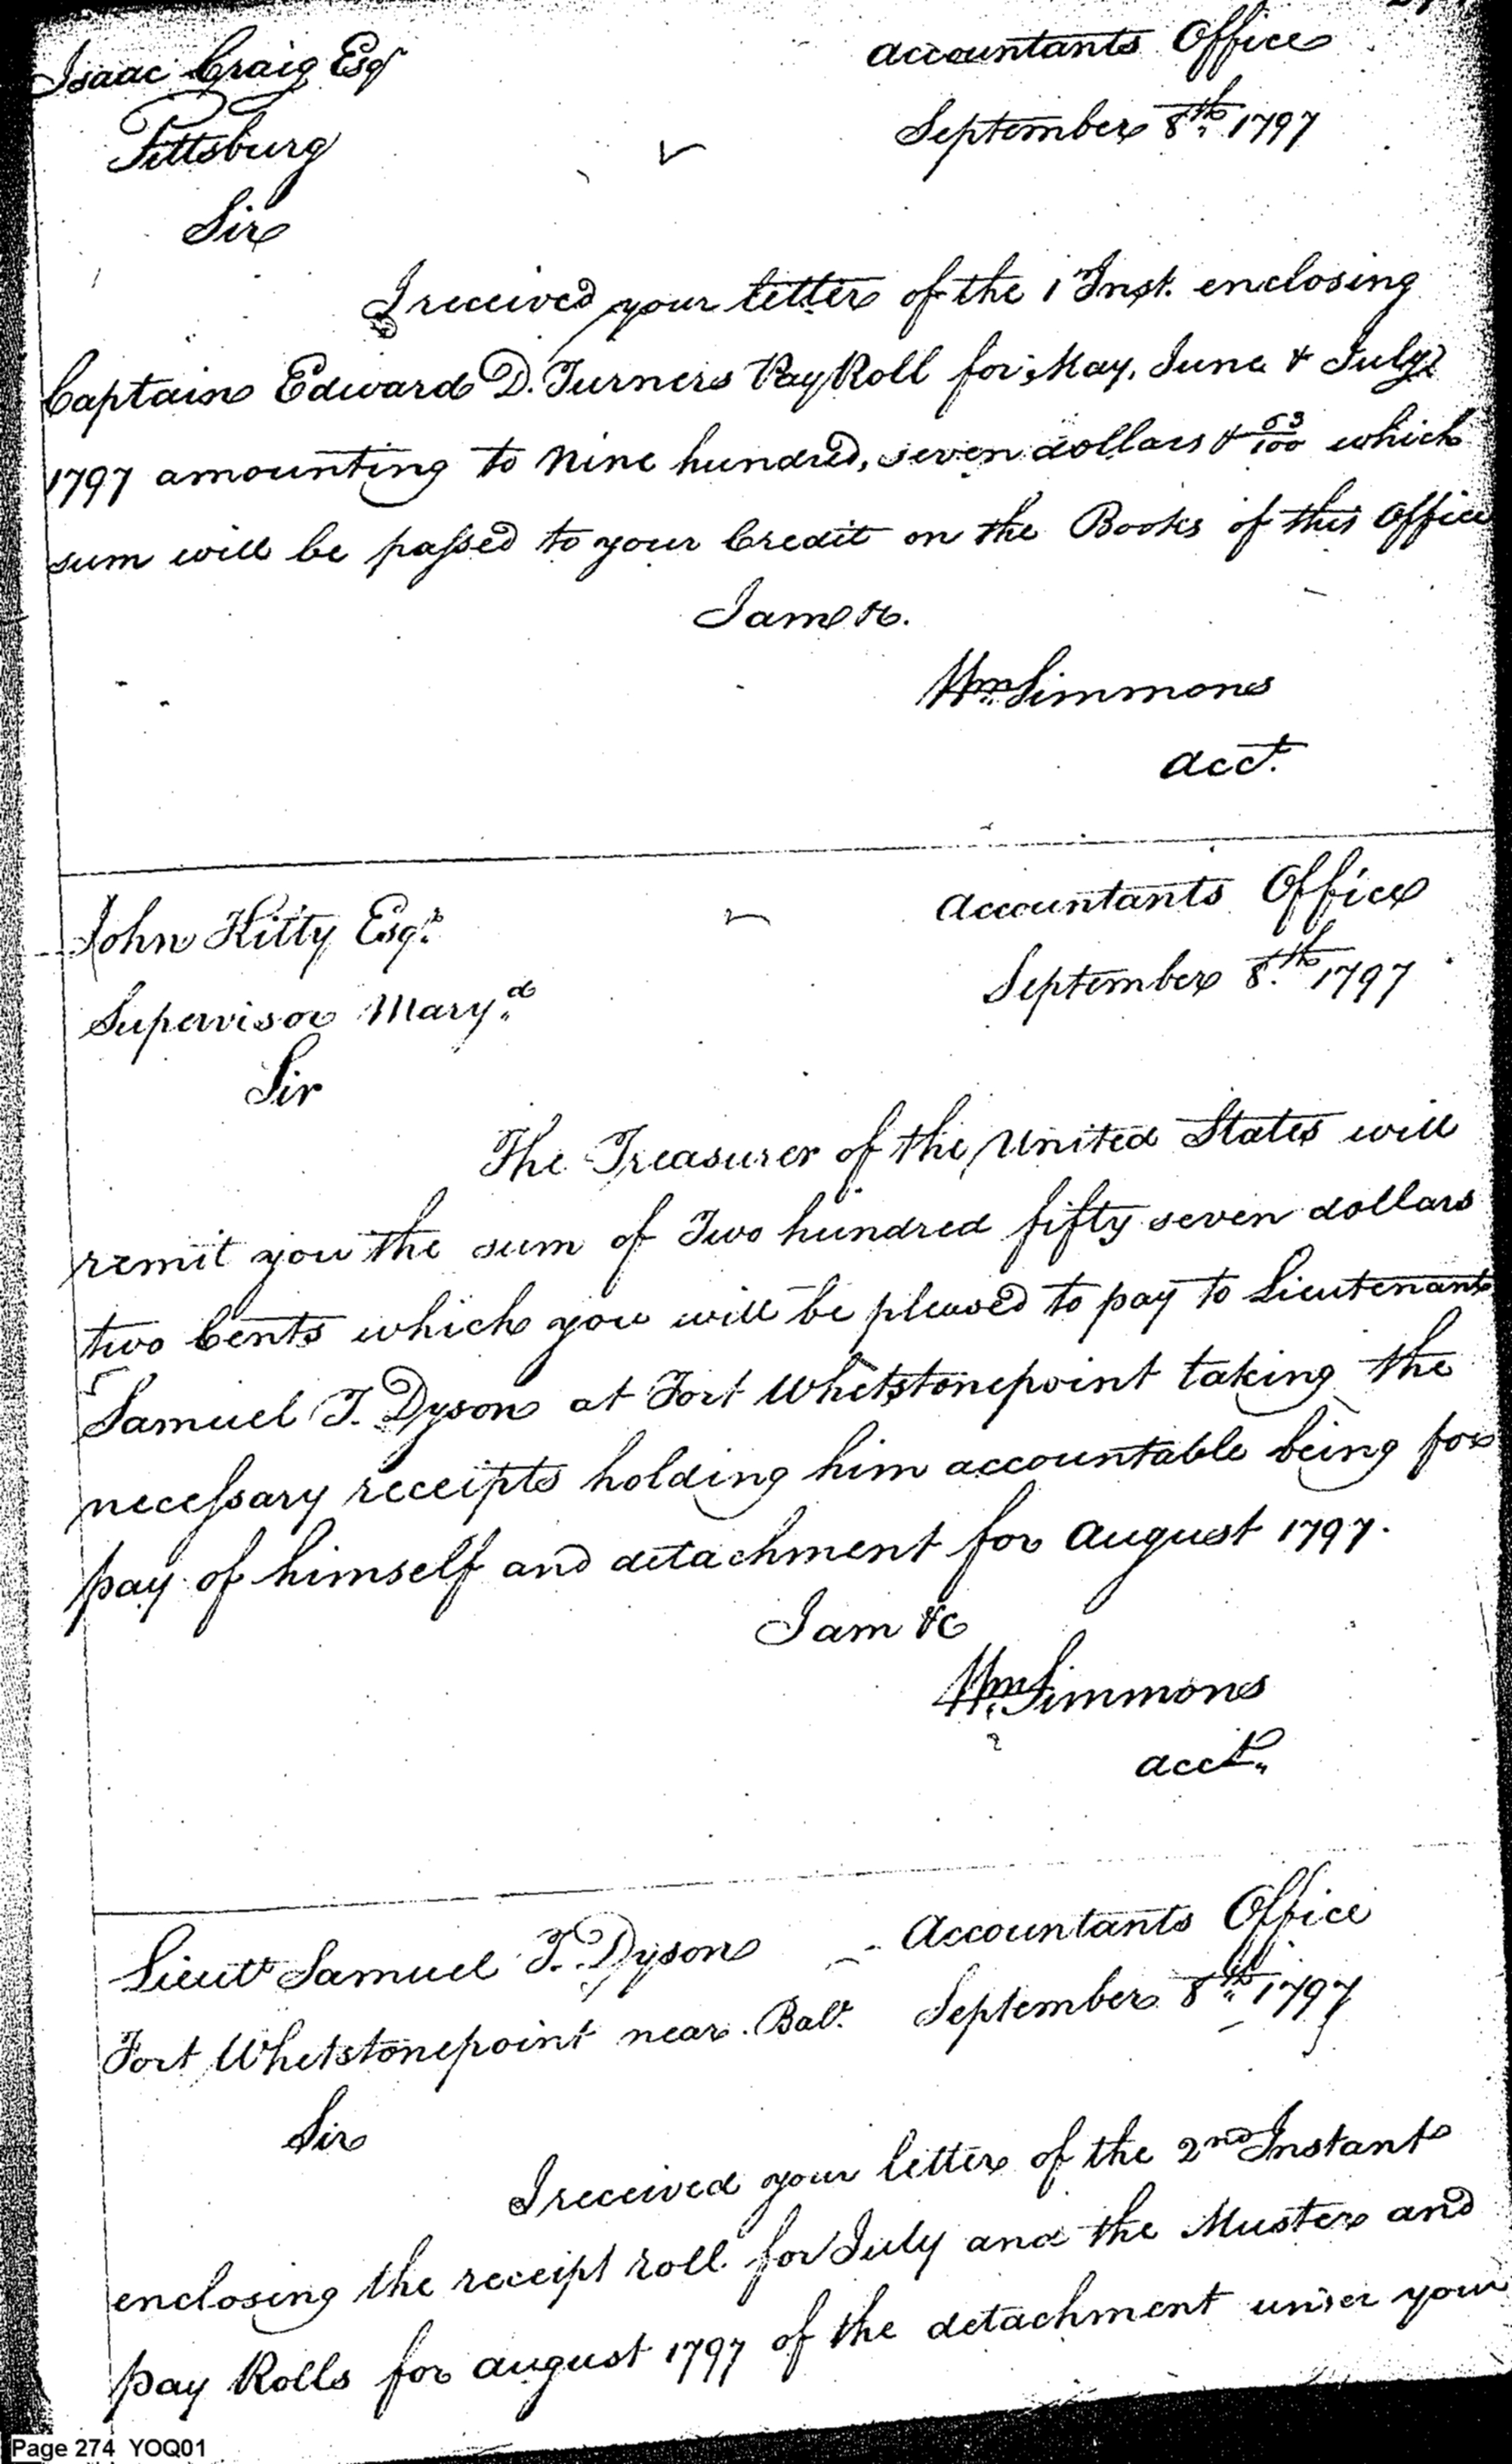 Isaac Craig Esqr
Accountants Office
Pittsburg
September 8th 1797
Sir
I received your letter of the 1 Inst. enclosing
Captain Edward D. Turners Pay Roll for May, June & July
1797 amounting to Nine hundred, seven dollars & 63/100 which
sum will be passed to your Credit on the Books of this Office
I am &c.
Wm Simmons
Acct.
John Kitty Esqr.
Accountants Office
Supervisor Maryd
September 8th 1797
Sir
The Treasurer of the United States will
remit you the sum of Two hundred fifty seven dollars
two Cents which you will be pleased to pay to Lieutenant
Samuel T. Dyson at Fort Whetstonepoint taking the
necessary receipts holding him accountable being for
pay of himself and detachment for August 1797.
I am &c
Wm Simmons
acct.
Lieut Samuel T. Dyson
Accountants Office
Fort Whetstonepoint near Balt.
September 8th 1797
Sir
I received your letter of the 2nd Instant
enclosing the receipt roll for July and the Muster and
pay Rolls for august 1797 of the detachment under your
Page 274 YOQ01